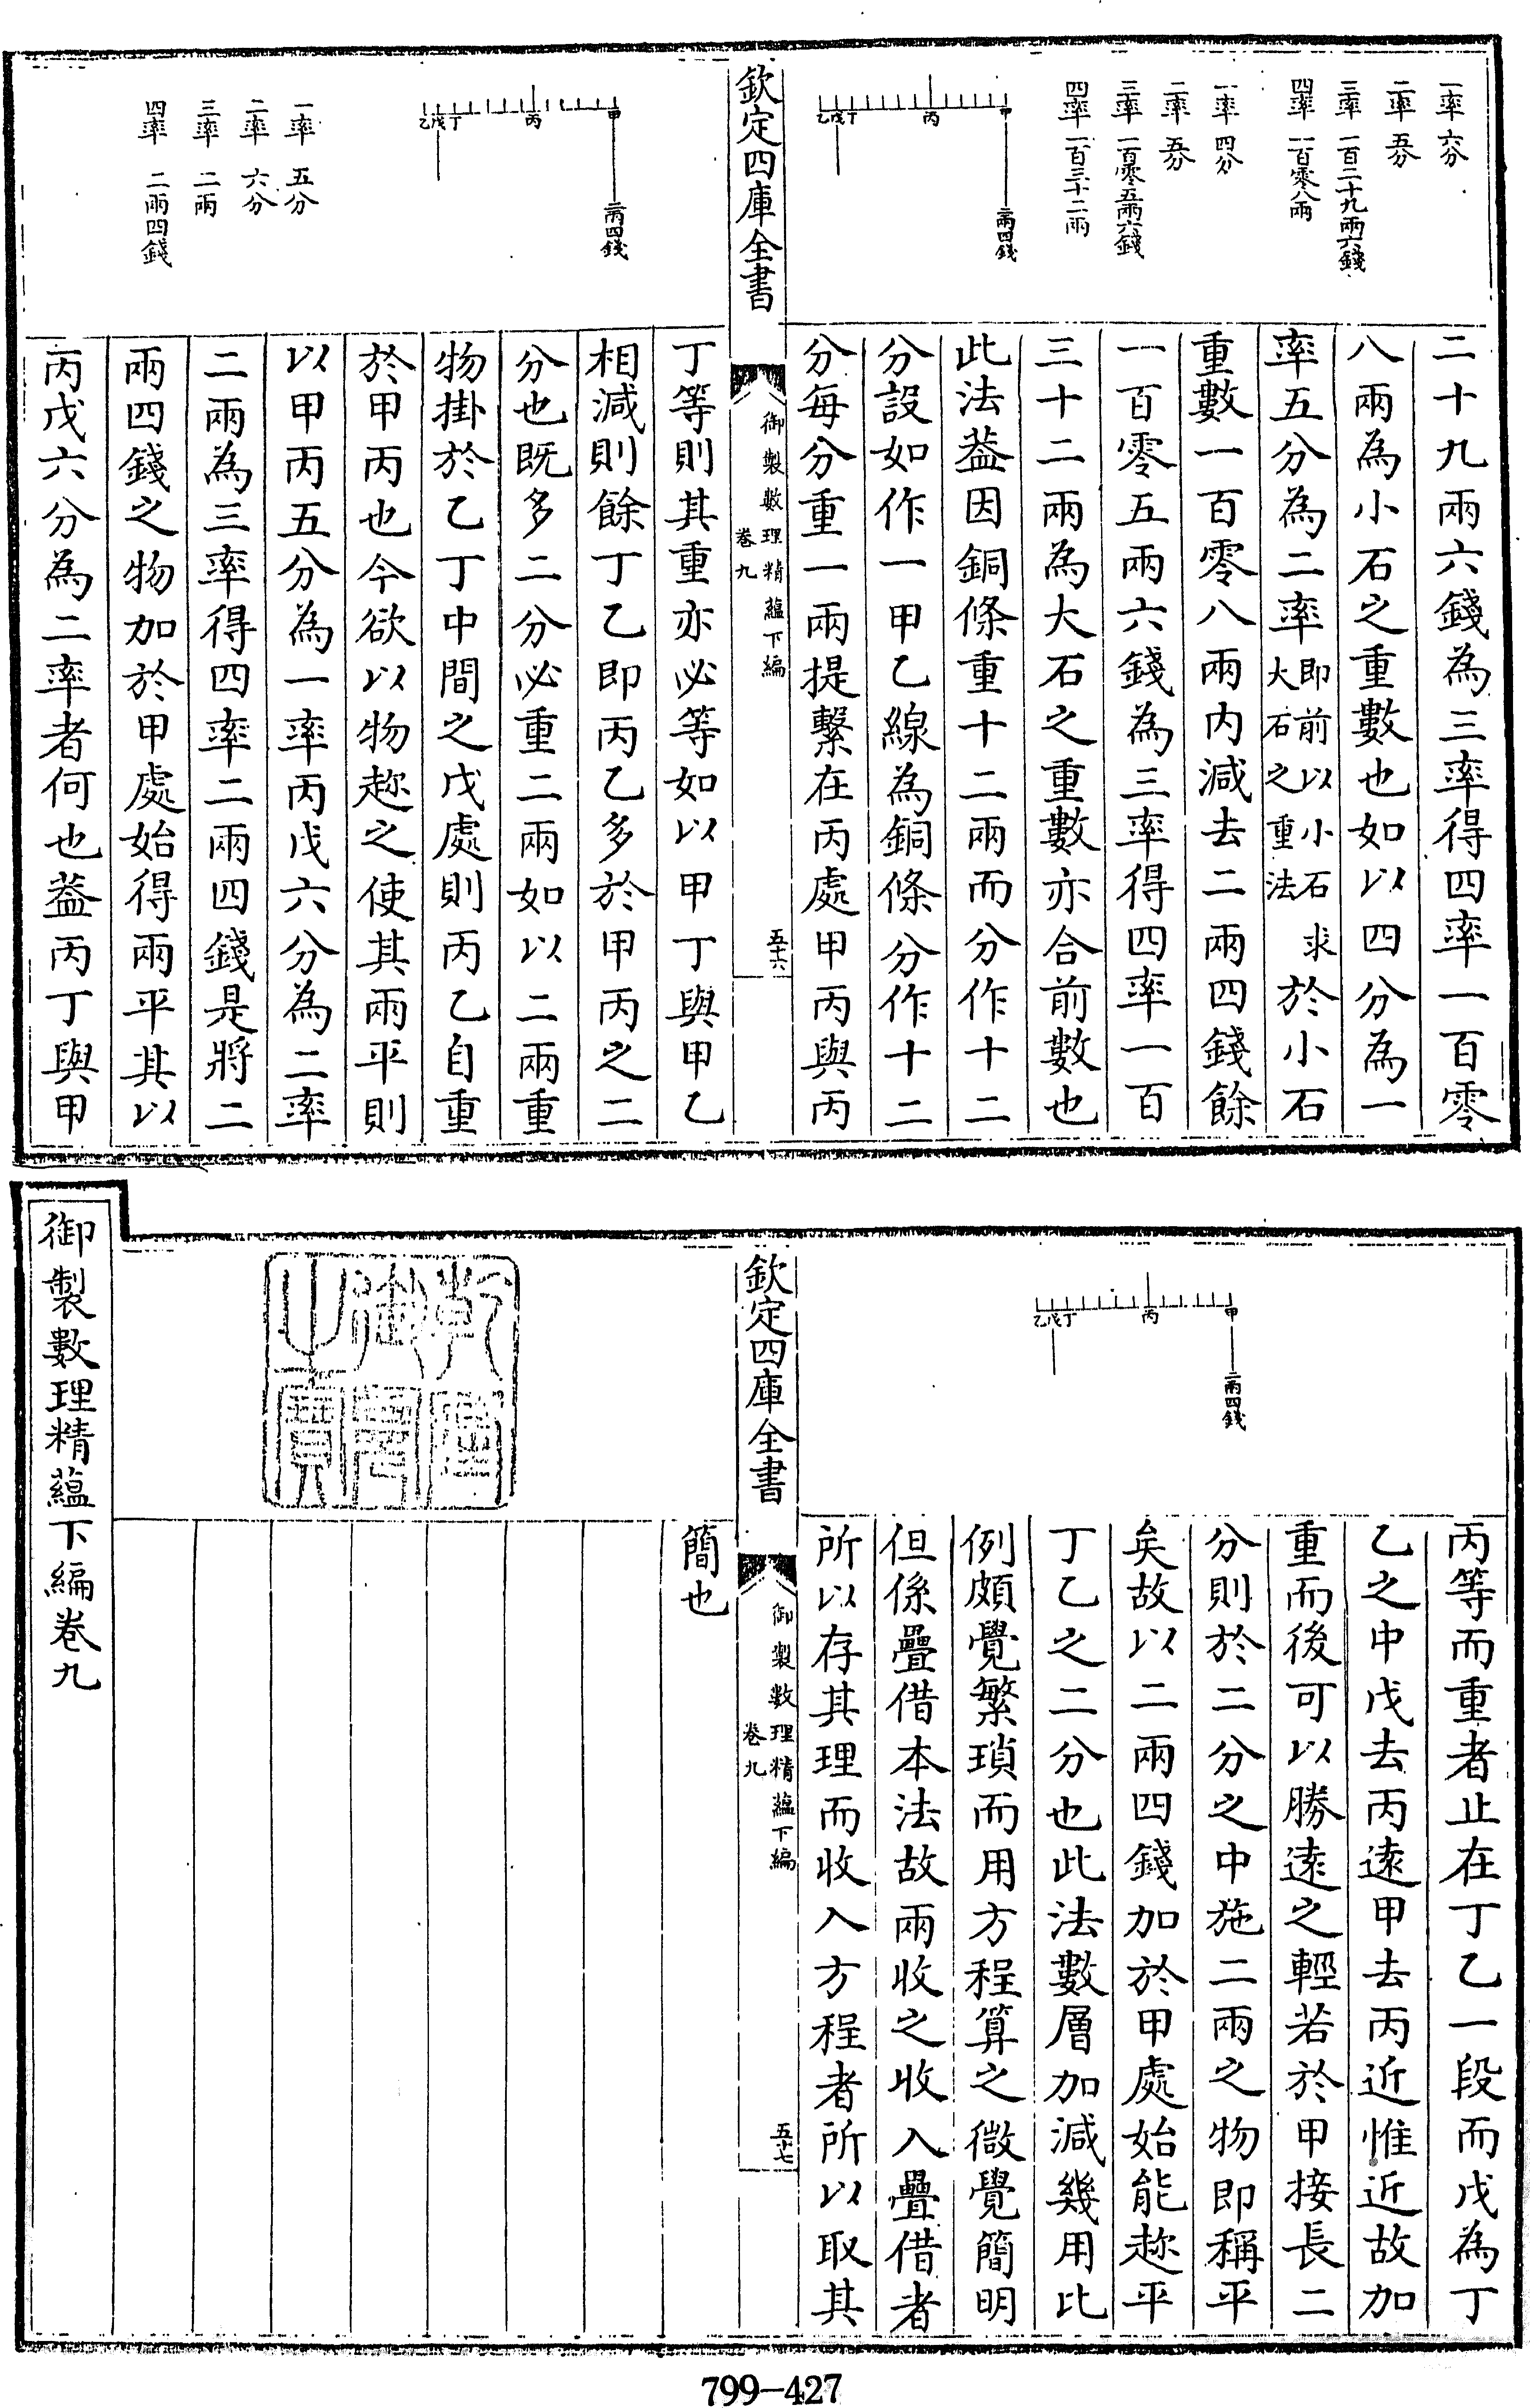 一率 六分
二率 五分
三率 一百二十九兩六錢
四率 一百零八兩
一率 四分
二率 五分
三率 一百零五兩六錢
四率 一百三十二兩
甲
丙
丁
戊
乙
二兩四錢
二十九兩六錢為三率得四率一百零
八兩為小石之重數也如以四分為一
率五分為二率即前以小石求大石之重法於小石
重數一百零八兩內減去二兩四錢餘
一百零五兩六錢為三率得四率一百
三十二兩為大石之重數亦合前數也
此法葢因銅條重十二兩而分作十二
分設如作一甲乙線為銅條分作十二
分每分重一兩提繫在丙處甲丙與丙
欽定四庫全書
御製數理精蘊下編
卷九
五十六
甲
丙
丁
戊
乙
二兩四錢
一率 五分
二率 六分
三率 二兩
四率 二兩四錢
丁等則其重亦必等如以甲丁與甲乙
相減則餘丁乙即丙乙多於甲丙之二
分也既多二分必重二兩如以二兩重
物掛於乙丁中間之戊處則丙乙自重
於甲丙也今欲以物趂之使其兩平則
以甲丙五分為一率丙戊六分為二率
二兩為三率得四率二兩四錢是將二
兩四錢之物加於甲處始得兩平其以
丙戊六分為二率者何也葢丙丁與甲
甲
丙
丁
戊
乙
二兩四錢
丙等而重者止在丁乙一段而戊為丁
乙之中戊去丙逺甲去丙近惟近故加
重而後可以勝逺之輕若於甲接長二
分則於二分之中施二兩之物即稱平
矣故以二兩四錢加於甲處始能趂平
丁乙之二分也此法數層加減幾用比
例頗覺繁瑣而用方程算之微覺簡明
但係疊借本法故兩收之收入疊借者
所以存其理而收入方程者所以取其
欽定四庫全書
御製數理精蘊下編
卷九
五十七
簡也
乾隆御覽之寶
御製數理精蘊下編卷九
799-427